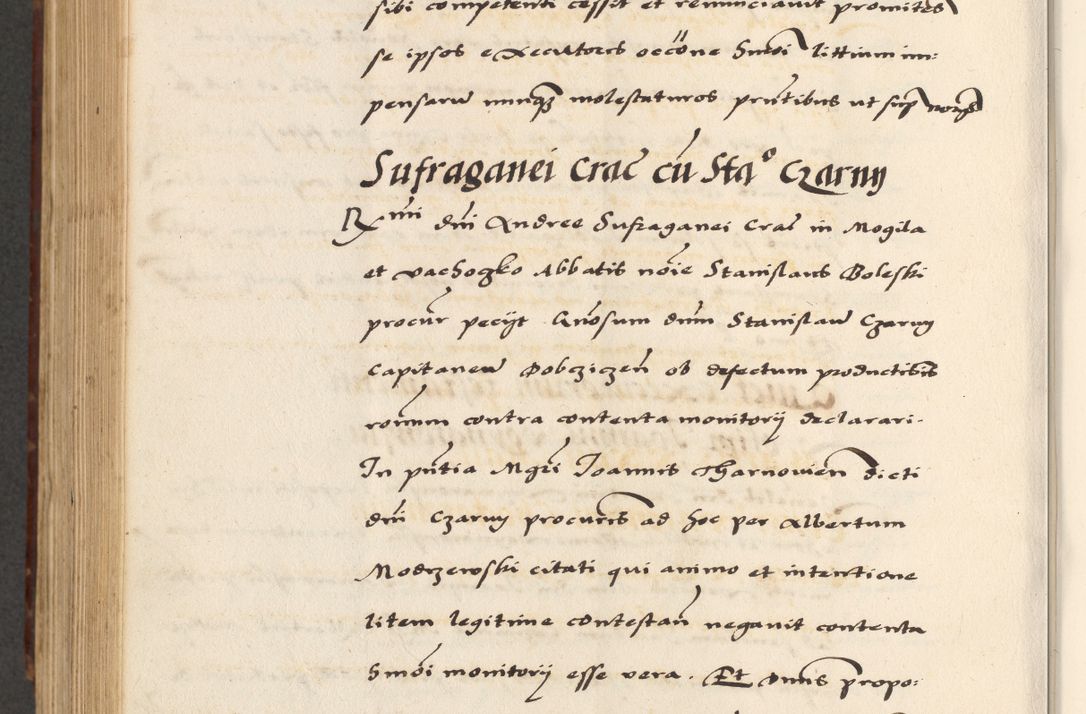 sibi competenti cessit et renunciavit promites
se ipsos executores occone hmoi littium im:
pensaru nunqz molestaturos pntibus ut sup
Sufraganei Crac cu Stao Czarny
Rmi dni Andree Sufraganei Crac in Mogila
et vachogko Abbatis noie Stanislaus Boleski
procur pecijt Cnosum dnm Stanislau Czarny
Capitaneu Dobczizen ob defectum productionis
ronum contra contenta monitorij declarari.
In pntia Mgri Joannis Tharnovien dicti
dni Czarny procuris ad hoc per Albertum
Modrzewski citati qui animo et intentione
litem legitime contestan negavit contenta
hmoi monitorij esse vera. Et Dnus propo: